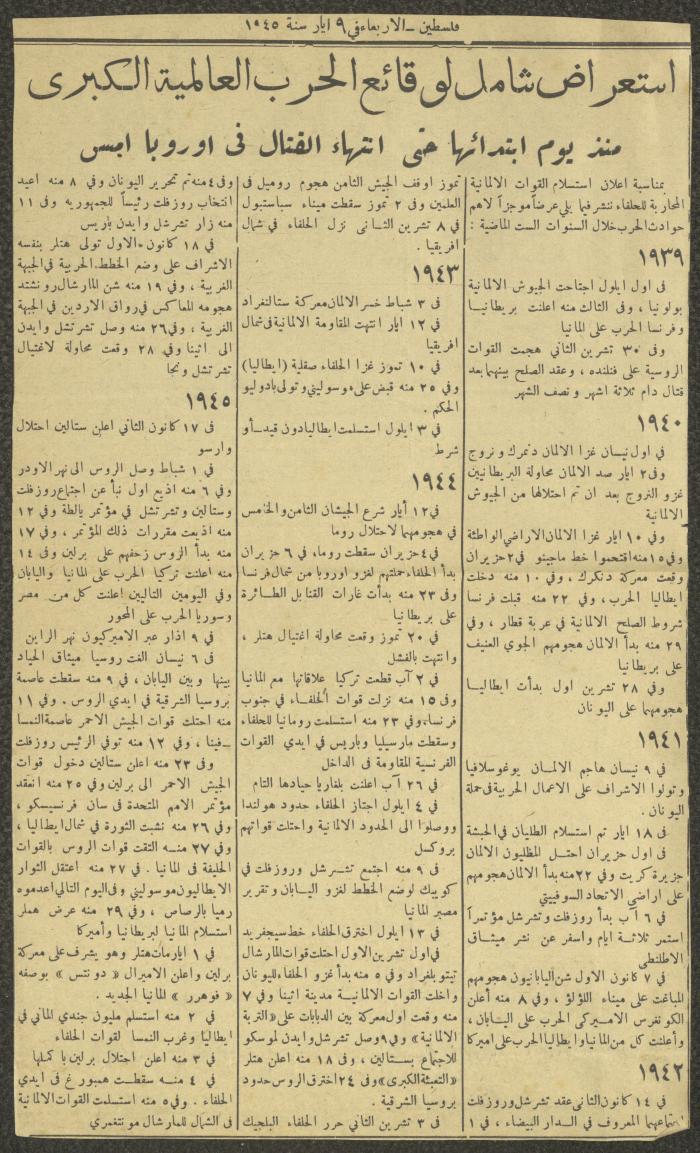 فلسطين ـ الاربعاء في ٩ ايار سنة ١٩٤٥
استعراض شامل لوقائع الحرب العالمية الكبرى
منذ يوم ابتدائها حتى انتهاء القتال في اوروبا امس
بمناسبة اعلان استسلام القوات الالمانية
المحاربة للحلفاء ننشر فيما يلي عرضاً موجزاً لاهم
حوادث الحرب خلال السنوات الست الماضية :
١٩٣٩
في اول ايلول اجتاحت الجيوش الالمانية
بولونيا ، وفى الثالث منه اعلنت بريطانيا
وفرنسا الحرب على المانيا
وفى ٣٠ تشرين الثاني هجمت القوات
الروسية على فنلنده ، وعقد الصلح بينهما بعد
قتال دام ثلاثة اشهر و نصف الشهر
١٩٤٠
في اول نيسان غزا الالمان دنمرك و نروج
وفى ٢ ايار صد الالمان محاولة البريطانيين
غزو النروج بعد ان تم احتلالها من الجيوش
الالمانية
وفي ١٠ ايار غزا الالمان الاراضي الواطئة
وفي ١٥ منه اقتحموا خط ماجينو في ٢ حزيران
وقعت معركة دنكرك ، وفي ١٠ منه دخلت
ايطاليا الحرب ، وفي ٢٢ منه قبلت فرنسا
شروط الصلح الالمانية في عربة قطار ، وفي
٢٩ منه بدأ الالمان هجومهم الجوي العنيف
على بريطانيا
وفي ٢٨ تشرين اول بدأت ايطاليا
هجومها على اليونان
١٩٤١
في ٩ نيسان هاجم الالمان يوغوسلافيا
وتولوا الاشراف على الاعمال الحربية في حملة
اليونان .
فى ١٨ ايار تم استسلام الطليان في الحبشة
فى اول حزيران احتل المظليون الالمان
جزيرة كريت وفي ٢٢ منه بدأ الالمان هجومهم
على اراضي الاتحاد السوفييتي
في ٦ آب بدأ روزفلت وتشرشل مؤتمراً
استمر ثلاثة ايام واسفر عن نشر ميثاق
الاطلنطي
في ٧ كانون الاول شن اليابانيون هجومهم
المباغت على ميناء اللؤلؤ ، وفي ٨ منه أعلن
الكونغرس الاميركي الحرب على اليابان ،
وأعلنت كل من المانيا وايطاليا الحرب على اميركا
١٩٤٢
في ١٤ كانون الثاني عقد تشرشل وروزفلت
اجتماعهما المعروف في الدار البيضاء ، في ١
تموز اوقف الجيش الثامن هجوم روميل في
العلمين وفى ٢ تموز سقطت ميناء سباستبول
في ٨ تشرين الثاني نزل الحلفاء في شمال
افريقيا .
١٩٤٣
في ٣ شباط خسر الالمان معركة ستالنغراد
في ١٢ ايار انتهت المقاومة الالمانية في شمال
افريقيا
في ١٠ تموز غزا الحلفاء صقلية (ايطاليا)
وفي ٢٥ منه قبض على موسوليني وتولى بادوليو
الحكم .
في ٣ ايلول استسلمت ايطاليا دون قيد أو
شرط
١٩٤٤
في ١٢ أيار شرع الجيشان الثامن والخامس
في هجومهما لاحتلال روما
في ٤ حزيران سقطت روما، في ٦ حزيران
بدأ الحلفاء حملتهم لغزو اوروبا من شمال فرنسا
وفى ٢٣ منه بدأت غارات القنابل الطائرة
على بريطانيا
في ٢٠ تموز وقعت محاولة اغتيال هتلر ،
وانتهت بالفشل
في ٢ آب قطعت تركيا علاقاتها مع المانيا
وفى ١٥ منه نزلت قوات الحلفاء في جنوب
فرنسا، وفى ٢٣ منه استسلمت رومانيا للحلفاء
وسقطت مارسيليا وباريس في ايدي القوات
الفرنسية المقاومة فى الداخل
في ٢٦ آب اعلنت بلغاريا حيادها التام
في ٤ ايلول اجتاز الحلفاء حدود هولندا
ووصلوا الى الحدود الالمانية واحتلت قواتهم
بروكسل
في ٩ منه اجتمع تشرشل وروزفلت في
كوبيك لوضع الخطط لغزو اليابان وتقرير
مصير المانيا
في ١٣ ايلول اخترق الحلفاء خط سيجفريد
في اول تشرين الاول احتلت قوات المارشال
تيتو بلغراد وفي ٥ منه بدأ غزو الحلفاء لليونان
واخلت القوات الالمانية مدينة اثينا وفي ٧
منه وقعت اول معركة بين الدبابات على «التربة
الالمانية » وفي ٩ وصل تشرشل وايدن لموسكو
للاجتماع بستالين ، وفى ١٨ منه اعلن هتلر
«التعبئة الكبرى» وفى ٢٤ اخترق الروس حدود
بروسيا الشرقية .
فى ٣ تشرين الثاني حرر الحلفاء البلجيك
وفى ٤ منه تم تحرير اليونان وفي ٨ منه اعيد
انتخاب روزفلت رئيساً للجمهوريه وفى ١١
منه زار تشرشل وايدن باريس
في ١٨ كانون الاول تولى هتلر بنفسه
الاشراف على وضع الخطط الحربية في الجبهة
الغربية ، وفي ١٩ منه شن المارشال رونشتد
هجومه المعاكس في رواق الاردين في الجبهة
الغربية ، وفي ٢٦ منه وصل تشرتشل وايدن
الى اثينا وفي ٢٨ وقعت محاولة لاغتيال
تشرتشل ونجا
١٩٤٥
فى ١٧ كانون الثاني اعلن ستالين احتلال
وارسو
في ١ شباط وصل الروس الى نهر الاودر
وفي ٦ منه اذيع اول نبأ عن اجتماع روزفلت
وستالين وتشرتشل في مؤتمر يالطة وفي ١٢
منه اذيعت مقررات ذلك المؤتمر ، وفي ١٧
منه بدأ الروس زحفهم على برلين وفى ١٤
منه اعلنت تركيا الحرب على المانيا واليابان
وفي اليومين التاليين اعلنت كل من مصر
وسوريا الحرب على المحور
في ٩ اذار عبر الاميركيون نهر الراين
في ٦ نيسان الغت روسيا ميثاق الحياد
بينها وبين اليابان ، في ٩ منه سقطت عاصمة
بروسيا الشرقية في ايدي الروس . وفي ١١
منه احتلت قوات الجيش الاحمر عاصمة النمسا
ـ فينا ، وفي ١٢ منه توفي الرئيس روزفلت
وفى ٢٣ منه اعلن ستالين دخول قوات
الجيش الاحمر الى برلين وفي ٢٥ منه انعقد
مؤتمر الامم المتحدة في سان فرنسيسكو ،
وفي ٢٦ منه نشبت الثورة في شمال ايطاليا ،
وفي ٢٧ منه التقت قوات الروس بالقوات
الحليفة في المانيا . في ٢٧ منه اعتقل الثوار
الايطاليون موسوليني وفي اليوم التالي اعدموه
رميا بالرصاص ، وفي ٢٩ منه عرض هملر
استسلام المانيا لبريطانيا وأميركا
في ١ ايار مات هتلر وهو يشرف على معركة
برلين واعلن الاميرال « دونتس » بوصفه
« فوهرر » المانيا الجديد .
في ٢ منه استسلم مليون جندي الماني في
ايطاليا وغرب النمسا لقوات الحلفاء
في ٣ منه اعلن احتلال برلين باكملها
في ٤ منه سقطت همبورغ في ايدي
الحلفاء . وفي ٥ منه استسلمت القوات الالمانية
في الشمال للمارشال مونتغمري